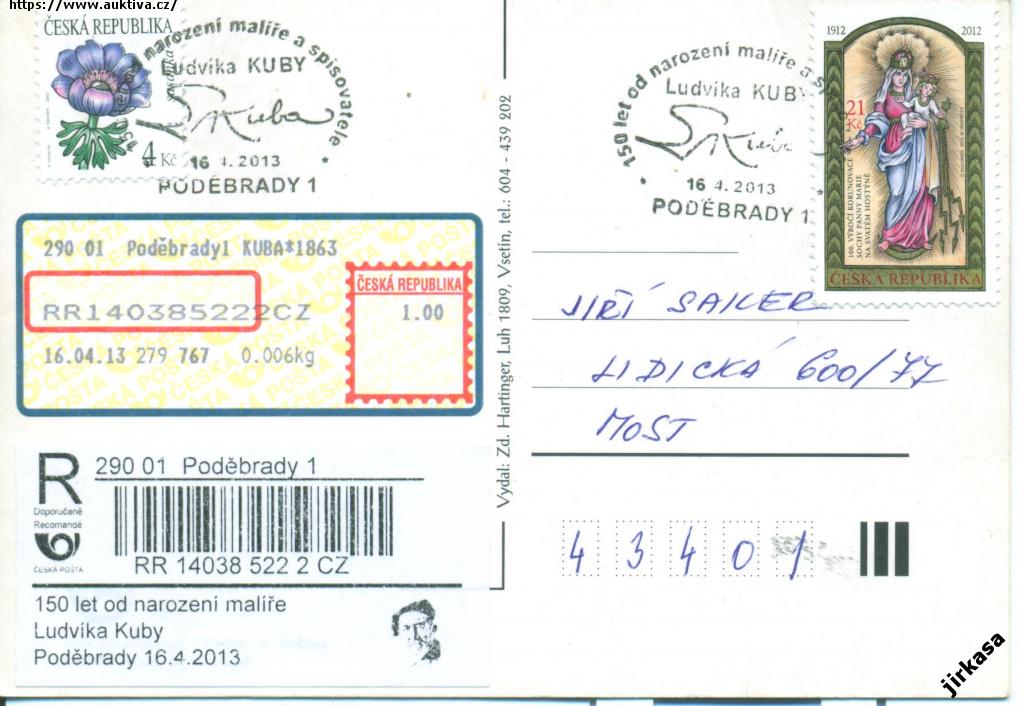 https://www.auktiva.cz/
ČESKÁ REPUBLIKA
4 Kč
narození malíře a spisovatele
Ludvíka KUBY
LKuba
16 4. 2013
PODĚBRADY 1
150 let od narození malíře a sp
Ludvíka KUBY
LKuba
16 4. 2013
PODĚBRADY 1
1912 2012
21 Kč
100. VÝROČÍ KORUNOVACE
SOCHY PANNY MARIE
NA SVATÉM HOSTÝNĚ
ČESKÁ REPUBLIKA
290 01 Poděbrady1 KUBA*1863
RR140385222CZ
16.04.13 279 767 0.006kg
ČESKÁ REPUBLIKA
1.00
ČESKÁ POŠTA
R
Doporučeně
Recomandé
ČESKÁ POŠTA
290 01 Poděbrady 1
RR 14038 522 2 CZ
150 let od narození malíře
Ludvíka Kuby
Poděbrady 16.4.2013
Vydal: Zd. Hartinger, Luh 1809, Vsetín, tel.: 604 - 439 202
JIŘÍ SAILER
LIDICKÁ 600/77
MOST
43401
jirkasa